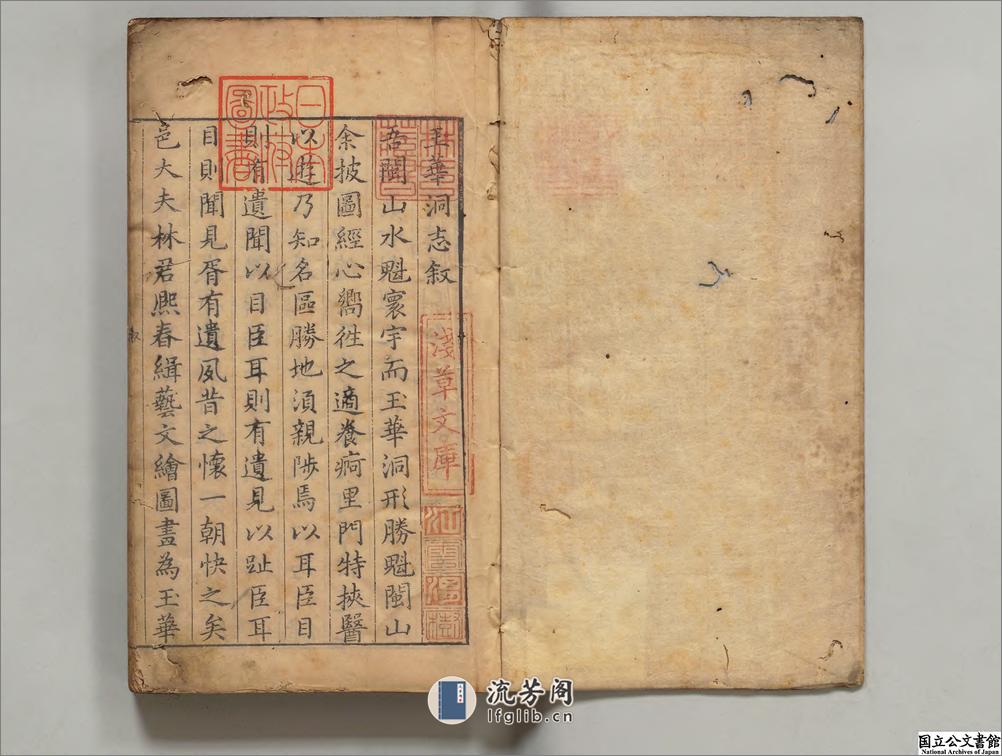 玉華洞志叙
吾閩山水魁寰宇而玉華洞形勝魁閩山
余披圖經心嚮徃之適養痾里門特挾醫
以遊乃知名區勝地湏親陟焉以耳臣目
則有遺聞以目臣耳則有遺見以趾臣耳
目則聞見胥有遺夙昔之懷一朝快之矣
邑大夫林君熙春緝藝文繪圖畫為玉華
叙
日本
政府
圖書
淺草文庫
流芳阁
lfglib.cn
国立公文書館
National Archives of Japan